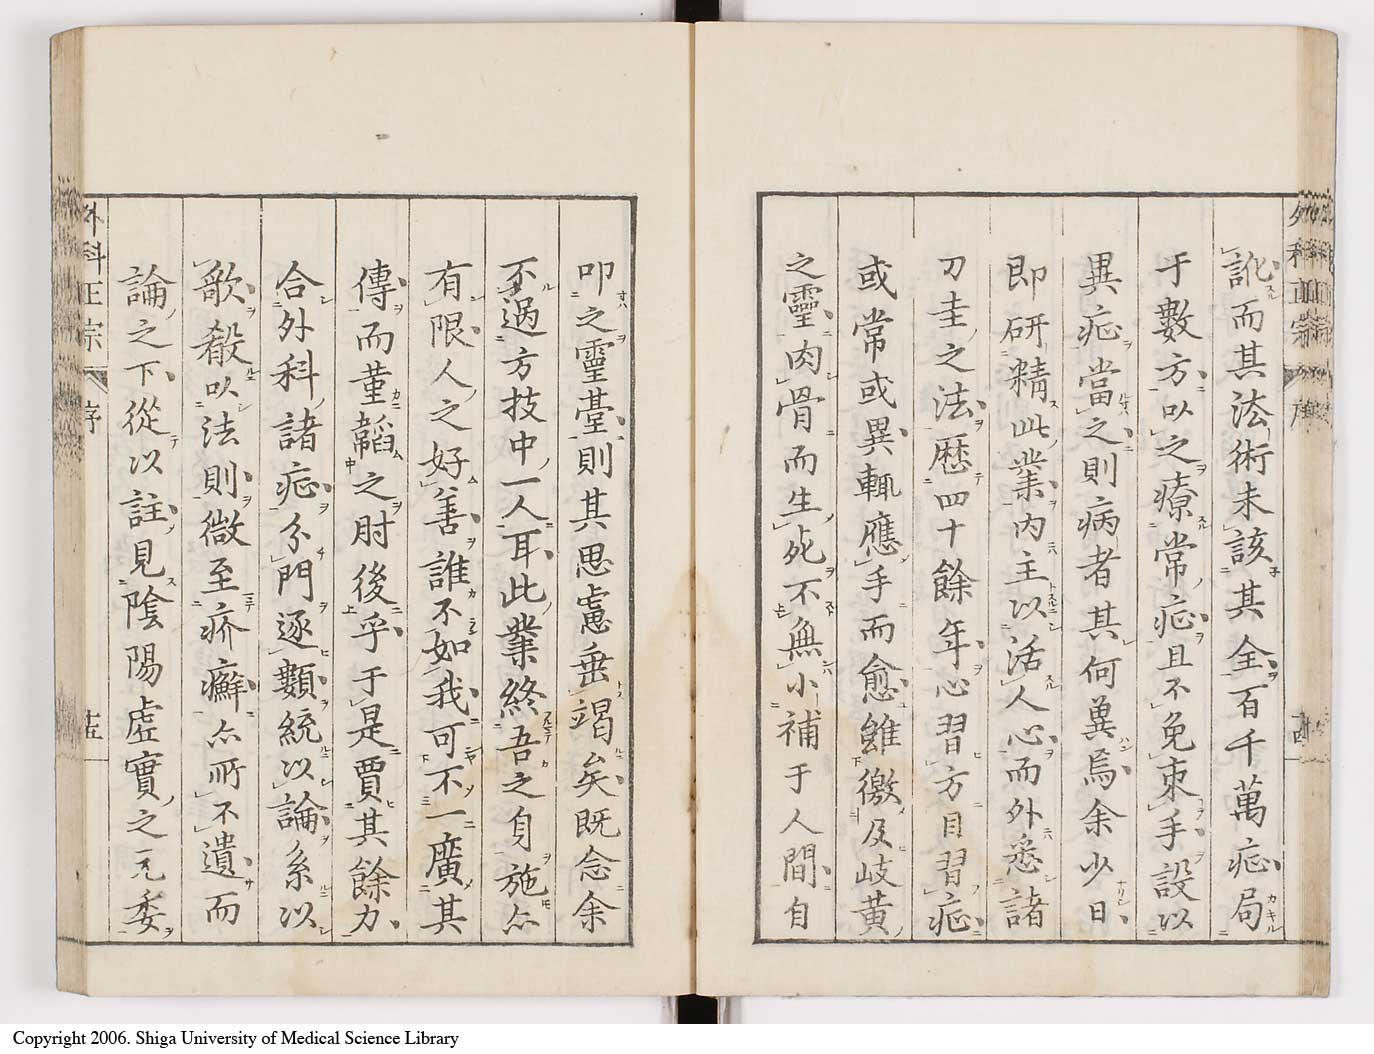 訛而其法術未該其全百千萬症局
于數方以之療常症且不免束手設以
異症當之則病者其何冀焉余少日
即研精此業内主以活人心而外悉諸
刀圭之法歴四十餘年心習方目習症
或常或異輒應手而愈雖徼及岐黄
之靈肉骨而生死不無小補于人間自
叩之靈臺則其思慮垂竭矣既念余
不過方技中一人耳此業終吾之身施亦
有限人之好善誰不如我可不一廣其
傳而菫韜之肘後乎于是賈其餘力
合外科諸症分門逐類統以論系以
歌殽以法則微至疥癬亦所不遺而
論之下從以註見陰陽虛實之元委
外科正宗 序 十五
Copyright 2006. Shiga University of Medical Science Library